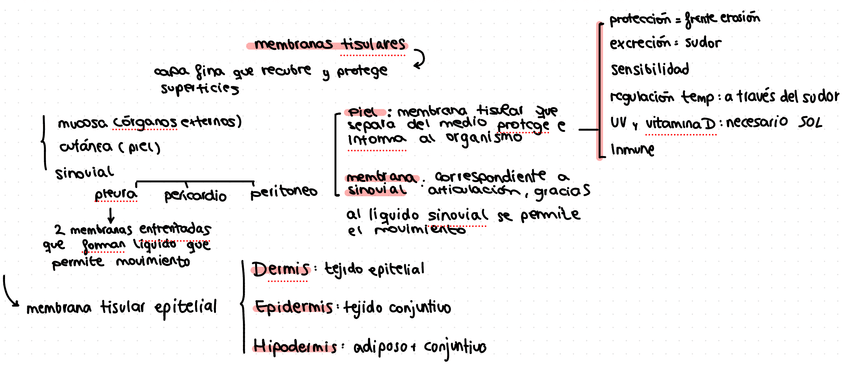 membranas tisulares
capa fina que recubre y protege
superficies
mucosa (órganos externos)
cutánea (piel)
sinovial
pleura pericardio peritoneo
2 membranas enfrentadas
que forman líquido que
permite movimiento
piel : membrana tisular que
separa del medio protege e
informa al organismo
membrana : correspondiente a
sinovial articulación, gracias
al líquido sinovial se permite
el movimiento
protección = frente erosión
excreción : sudor
sensibilidad
regulación temp : a través del sudor
UV y vitamina D : necesario SOL
Inmune
membrana tisular epitelial
Dermis : tejido epitelial
Epidermis : tejido conjuntivo
Hipodermis : adiposo + conjuntivo